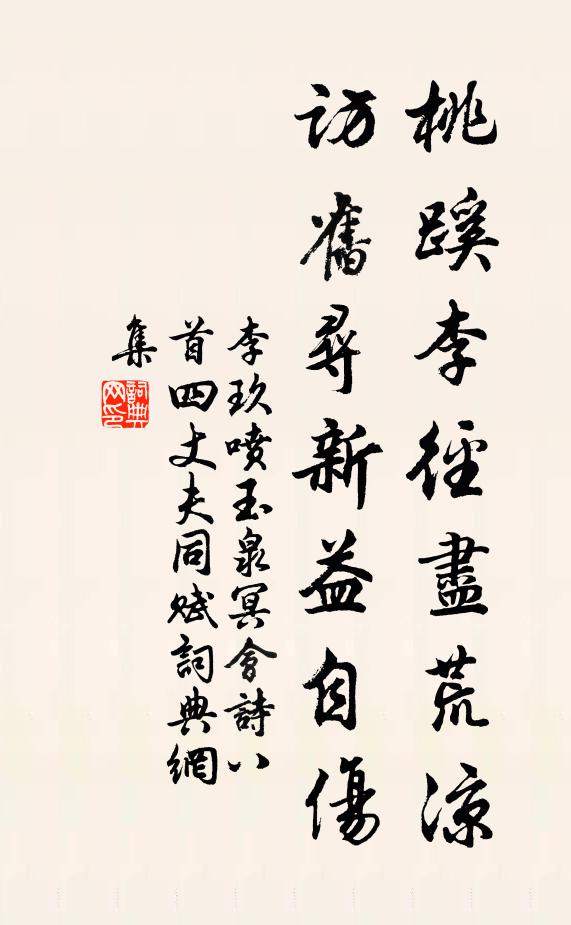 桃蹊李徑盡荒涼
訪舊尋新益自傷
李玖噴玉泉冥會詩八
首四丈夫同賦詞典網
集
詞典
网印